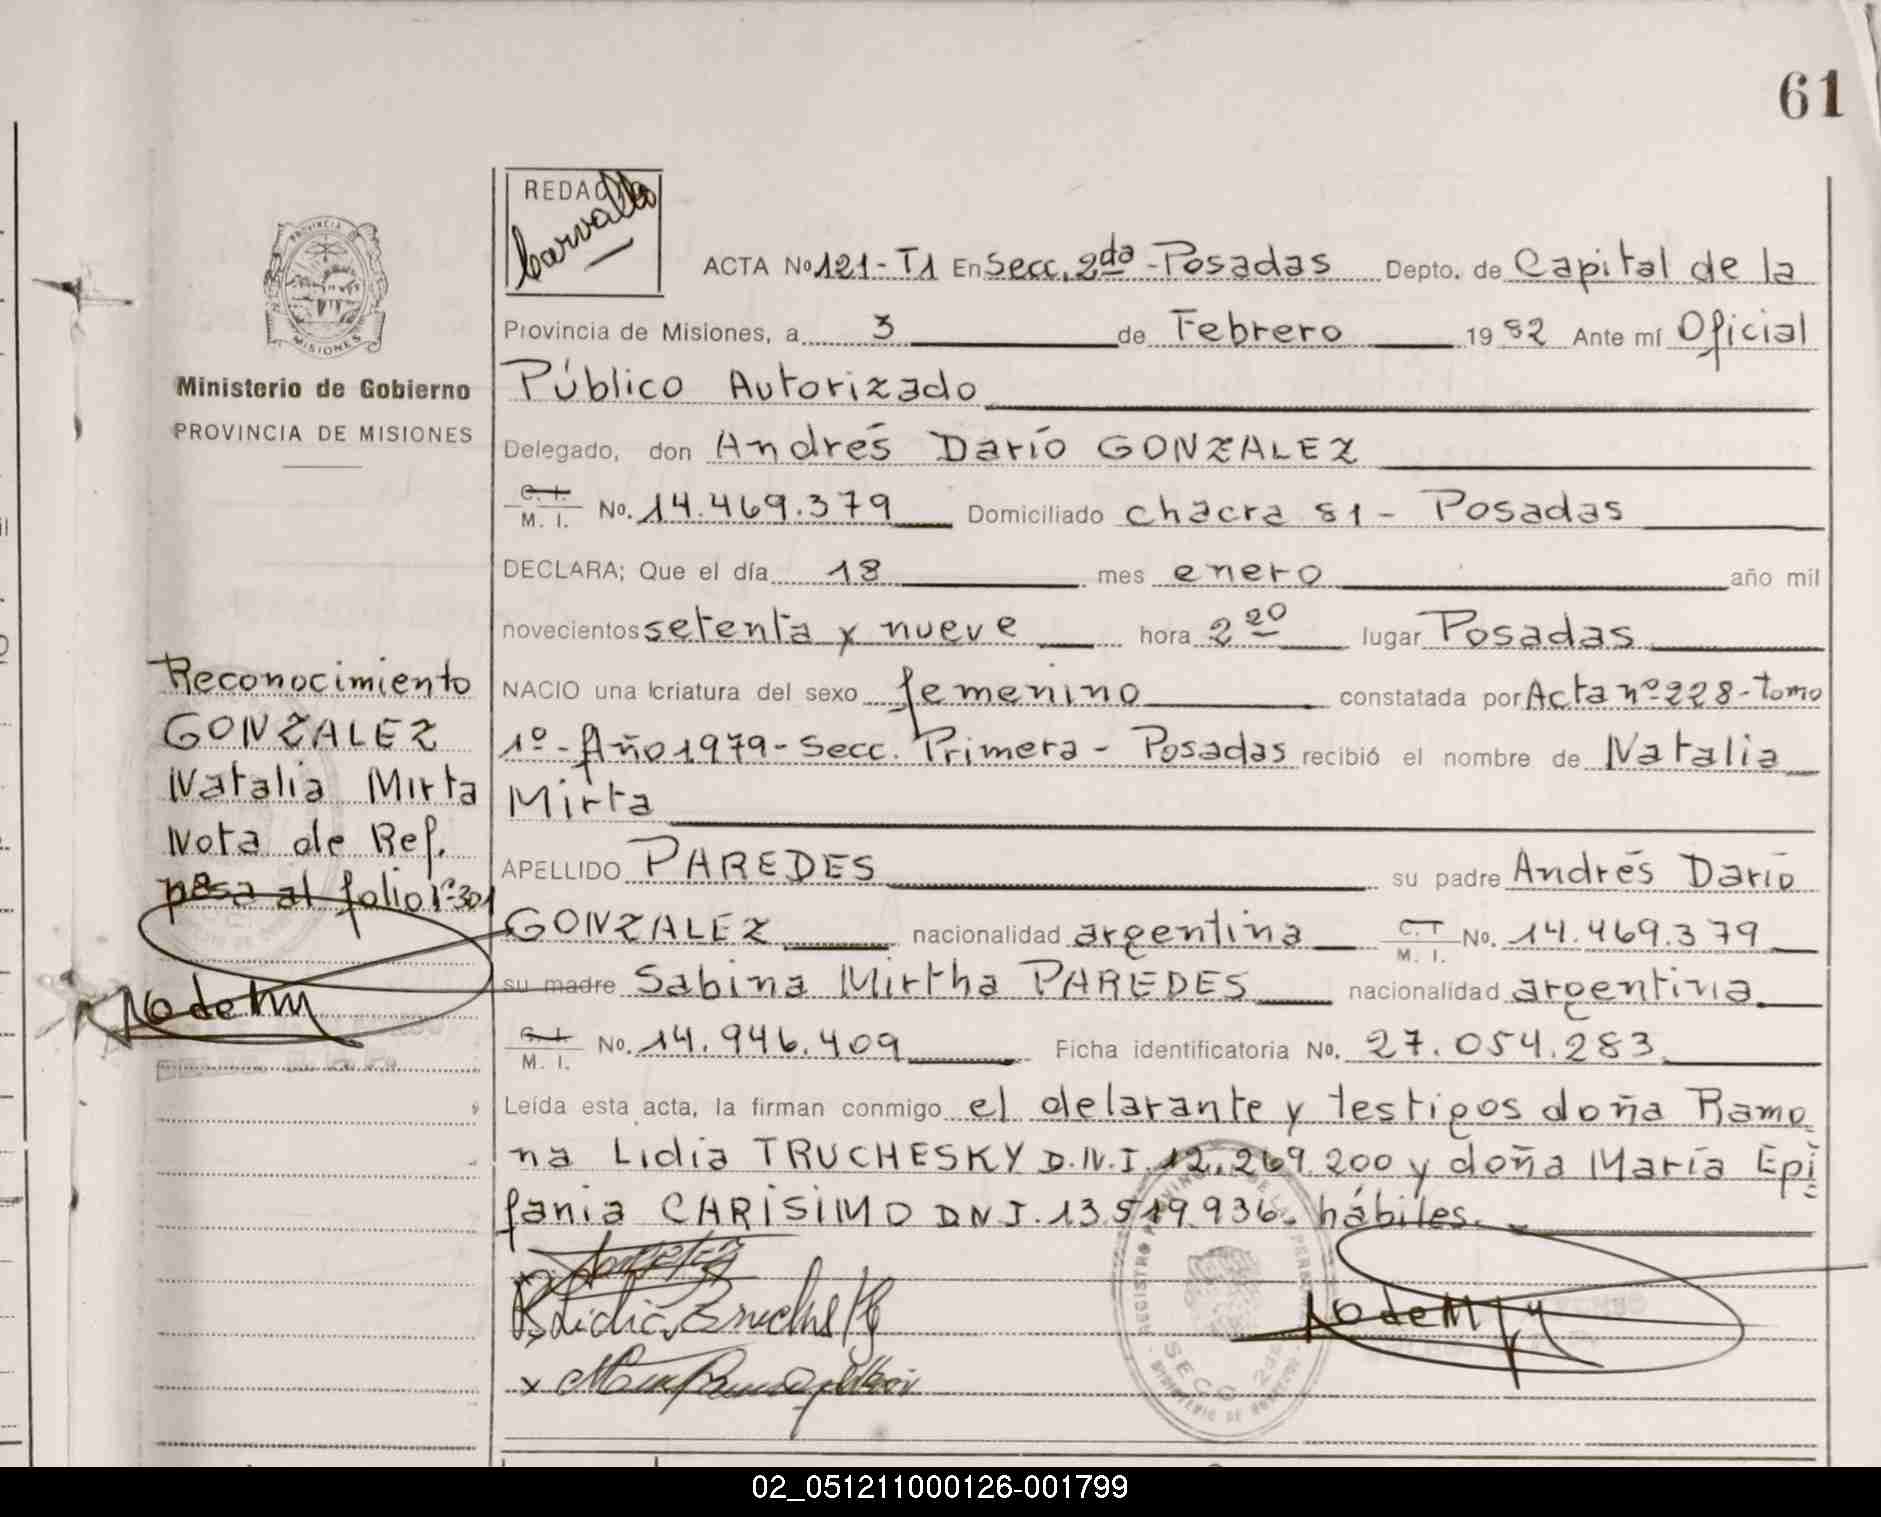 61
REDAC
Carvallo
PROVINCIA DE
MISIONES
Ministerio de Gobierno
PROVINCIA DE MISIONES
ACTA No 121-T1 En Secc. 2da - Posadas Depto. de Capital de la
Provincia de Misiones, a 3 de Febrero 19 82 Ante mí Oficial
Público Autorizado
Delegado, don Andrés Darío GONZALEZ
C. I. M. I. No. 14.469.379 Domiciliado chacra 81 - Posadas
DECLARA; Que el día 18 mes enero año mil
novecientos setenta y nueve hora 2 20 lugar Posadas
NACIO una criatura del sexo femenino constatada por Acta nº 228-Tomo
1º - Año 1979 - Secc. Primera - Posadas recibió el nombre de Natalia
Mirta
APELLIDO PAREDES su padre Andrés Darío
GONZALEZ nacionalidad argentina C. I. M. I. No. 14.469.379
su madre Sabina Mirtha PAREDES nacionalidad argentina
C. I. M. I. No. 14.946.409 Ficha identificatoria No. 27.054.283
Leída esta acta, la firman conmigo el delarante y testigos doña Ramo
na Lidia TRUCHESKY D.N.I. 12.269.200 y doña María Epi
fania CARISIMO DNI. 13.519.936. hábiles.
Reconocimiento
GONZALEZ
Natalia Mirta
Nota de Ref.
pasa al folio nº 301
REGISTRO PROVINCIAL DE LAS PERSONAS
SECC. 2da
MINISTERIO DE GOBIERNO
02_051211000126-001799